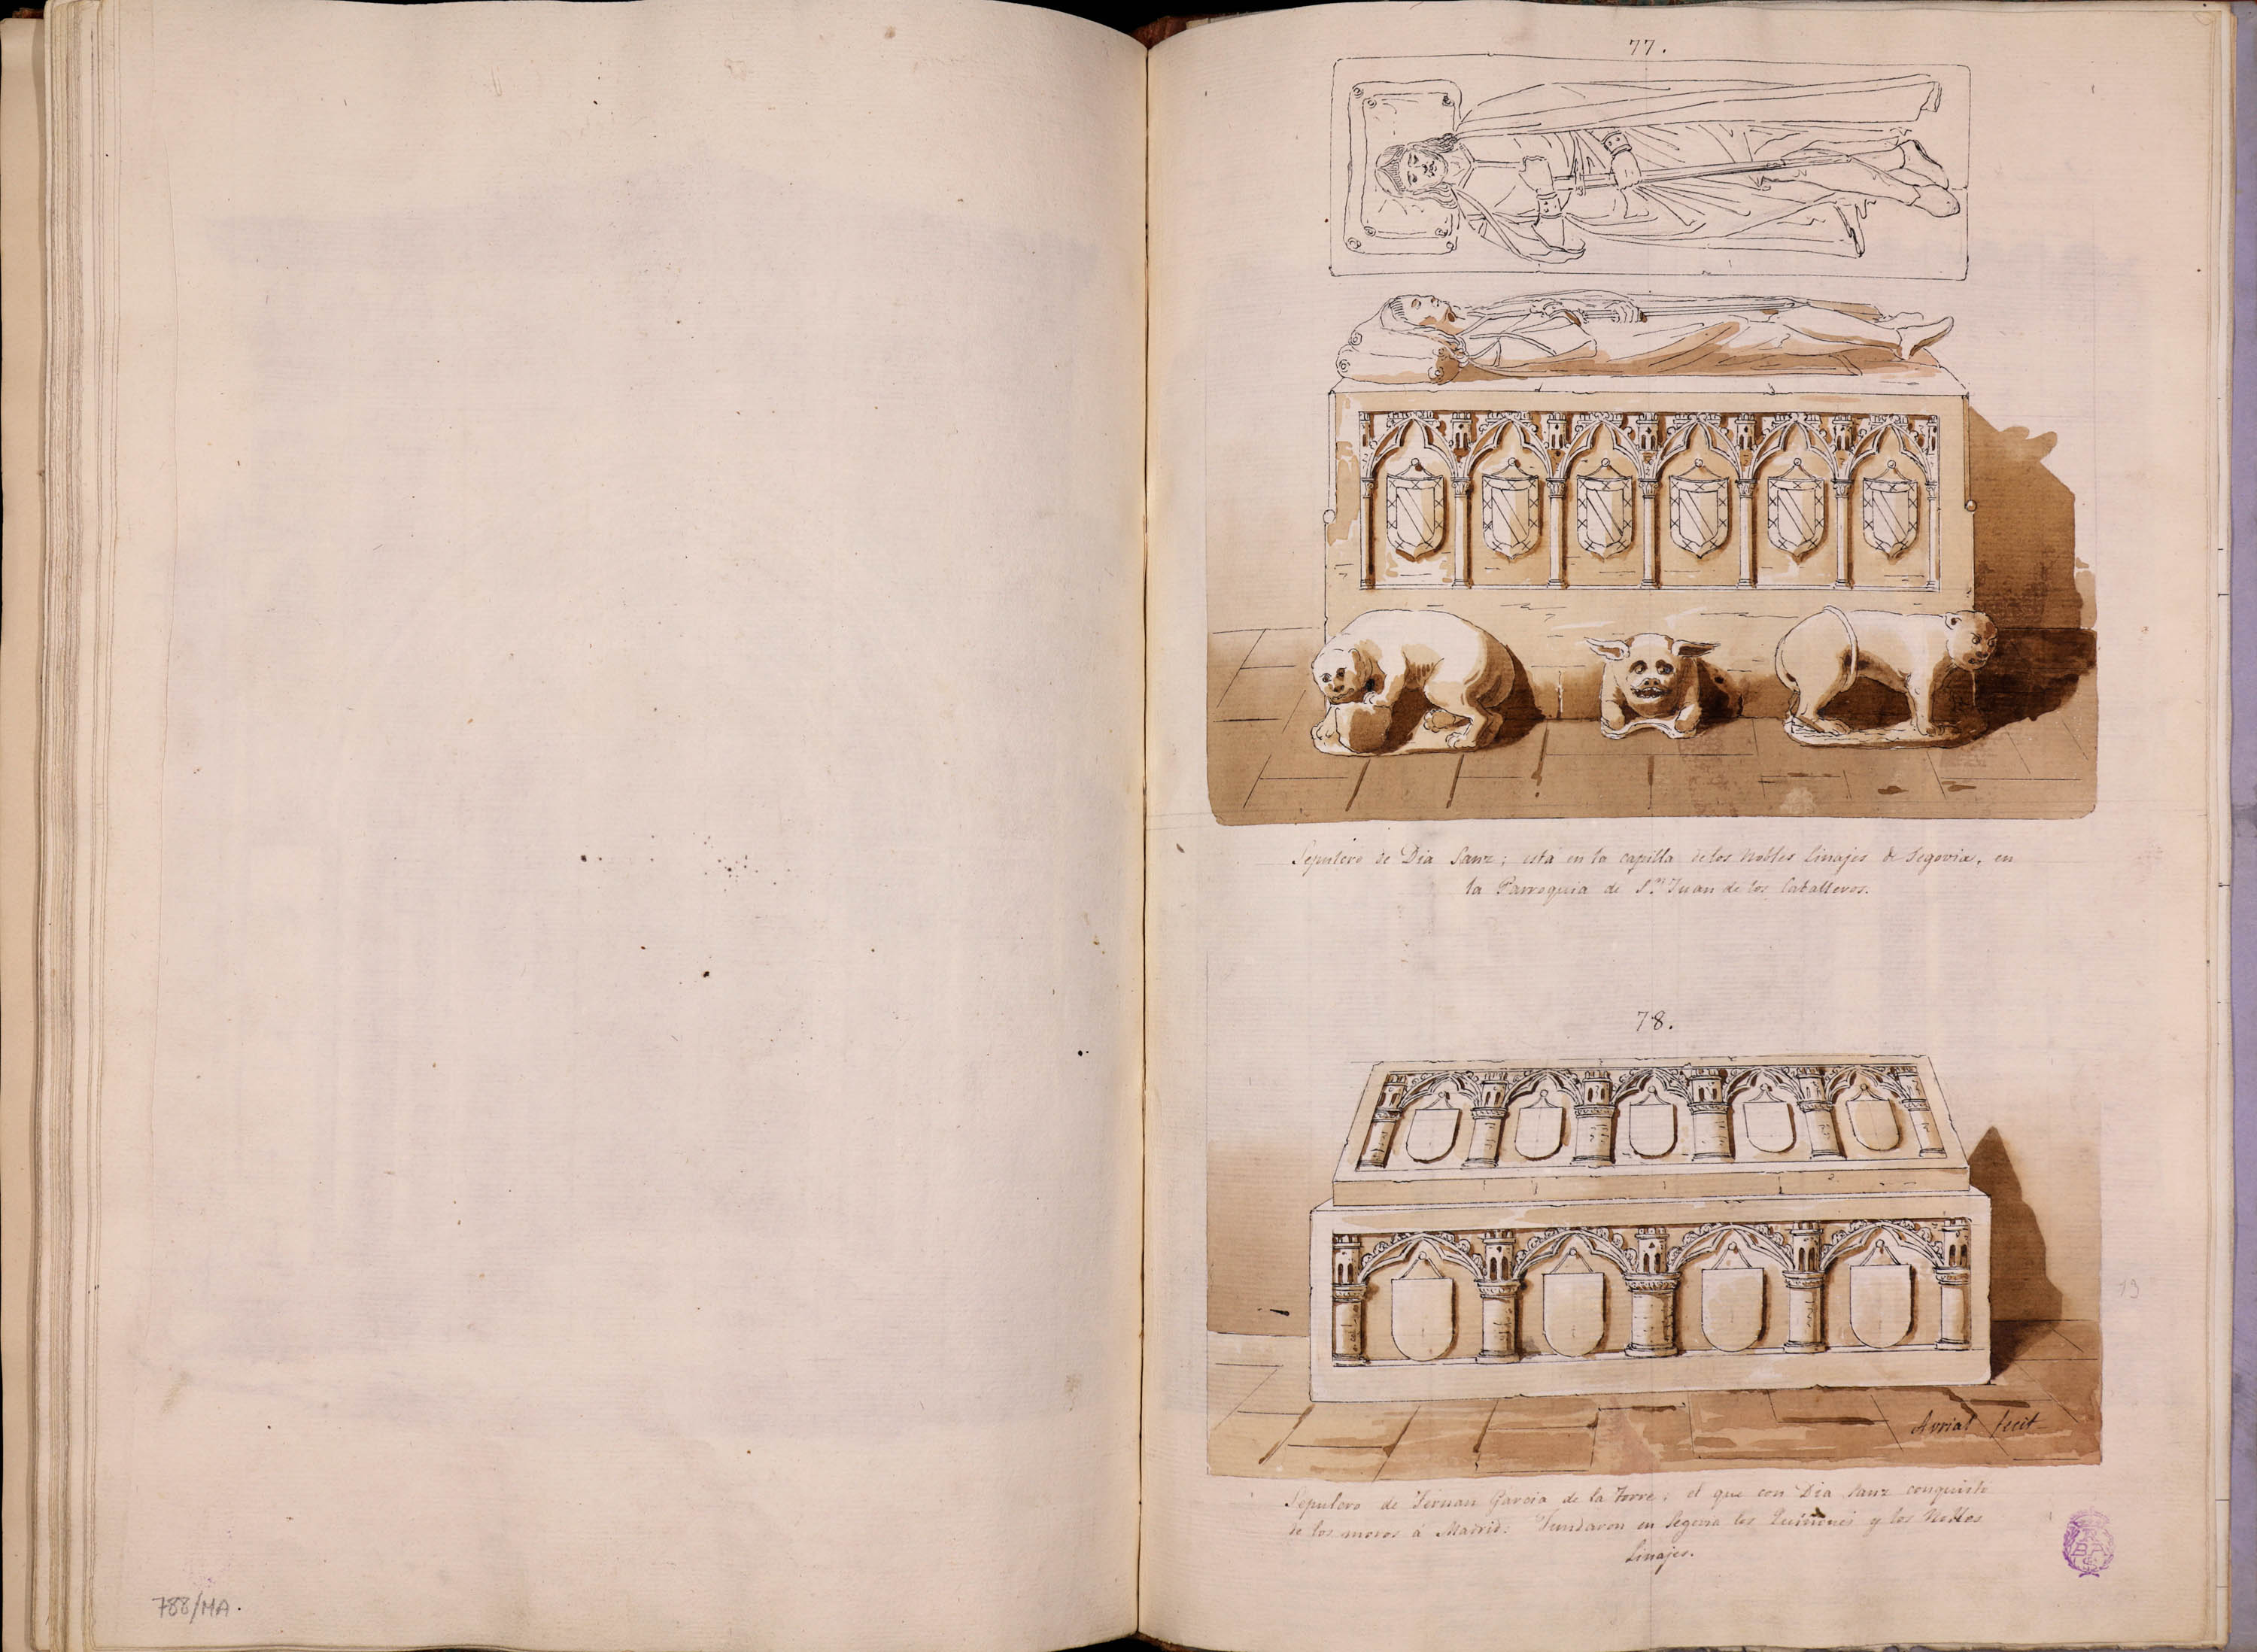 77.
Sepulcro de Dia Sanz; está en la capilla de los Nobles linajes de Segovia, en
la Parroquia de S.n Juan de los Caballeros.
78.
19
Avrial fecit
Sepulcro de Fernan Garcia de la Torre; el que con Dia Sanz conquistó
de los moros á Madrid: Fundaron en Segovia los Quiñones y los Nobles
Linajes.
788/MA.